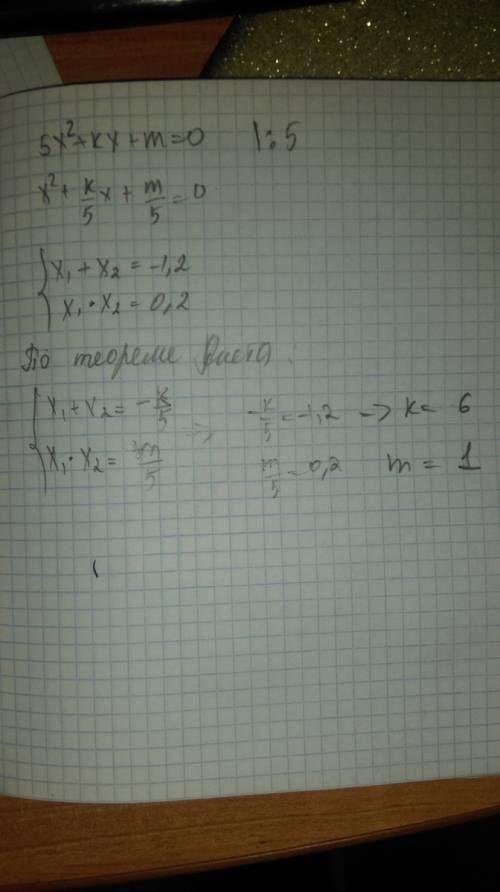 5x²+kx+m=0 |:5
x²+k/5x+m/5=0
{x₁+x₂=-1,2
x₁·x₂=0,2
По теореме Виета:
{x₁+x₂=-k/5 => -k/5=-1,2 -> k= 6
x₁·x₂=m/5 m/5=0,2 m= 1